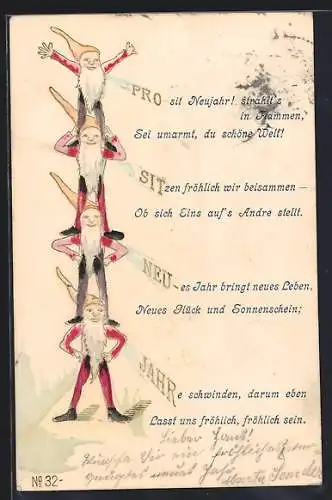 PRO sit Neujahr! strahlt's
in Flammen,
Sei umarmt, du schöne Welt!
SIT zen fröhlich wir beisammen —
Ob sich Eins auf's Andre stellt.
NEU- es Jahr bringt neues Leben,
Neues Glück und Sonnenschein;
JAHR e schwinden, darum eben
Lasst uns fröhlich, fröhlich sein.
Lieber
Wünsche Dir ein fröhliches
neues Jahr
No 32-